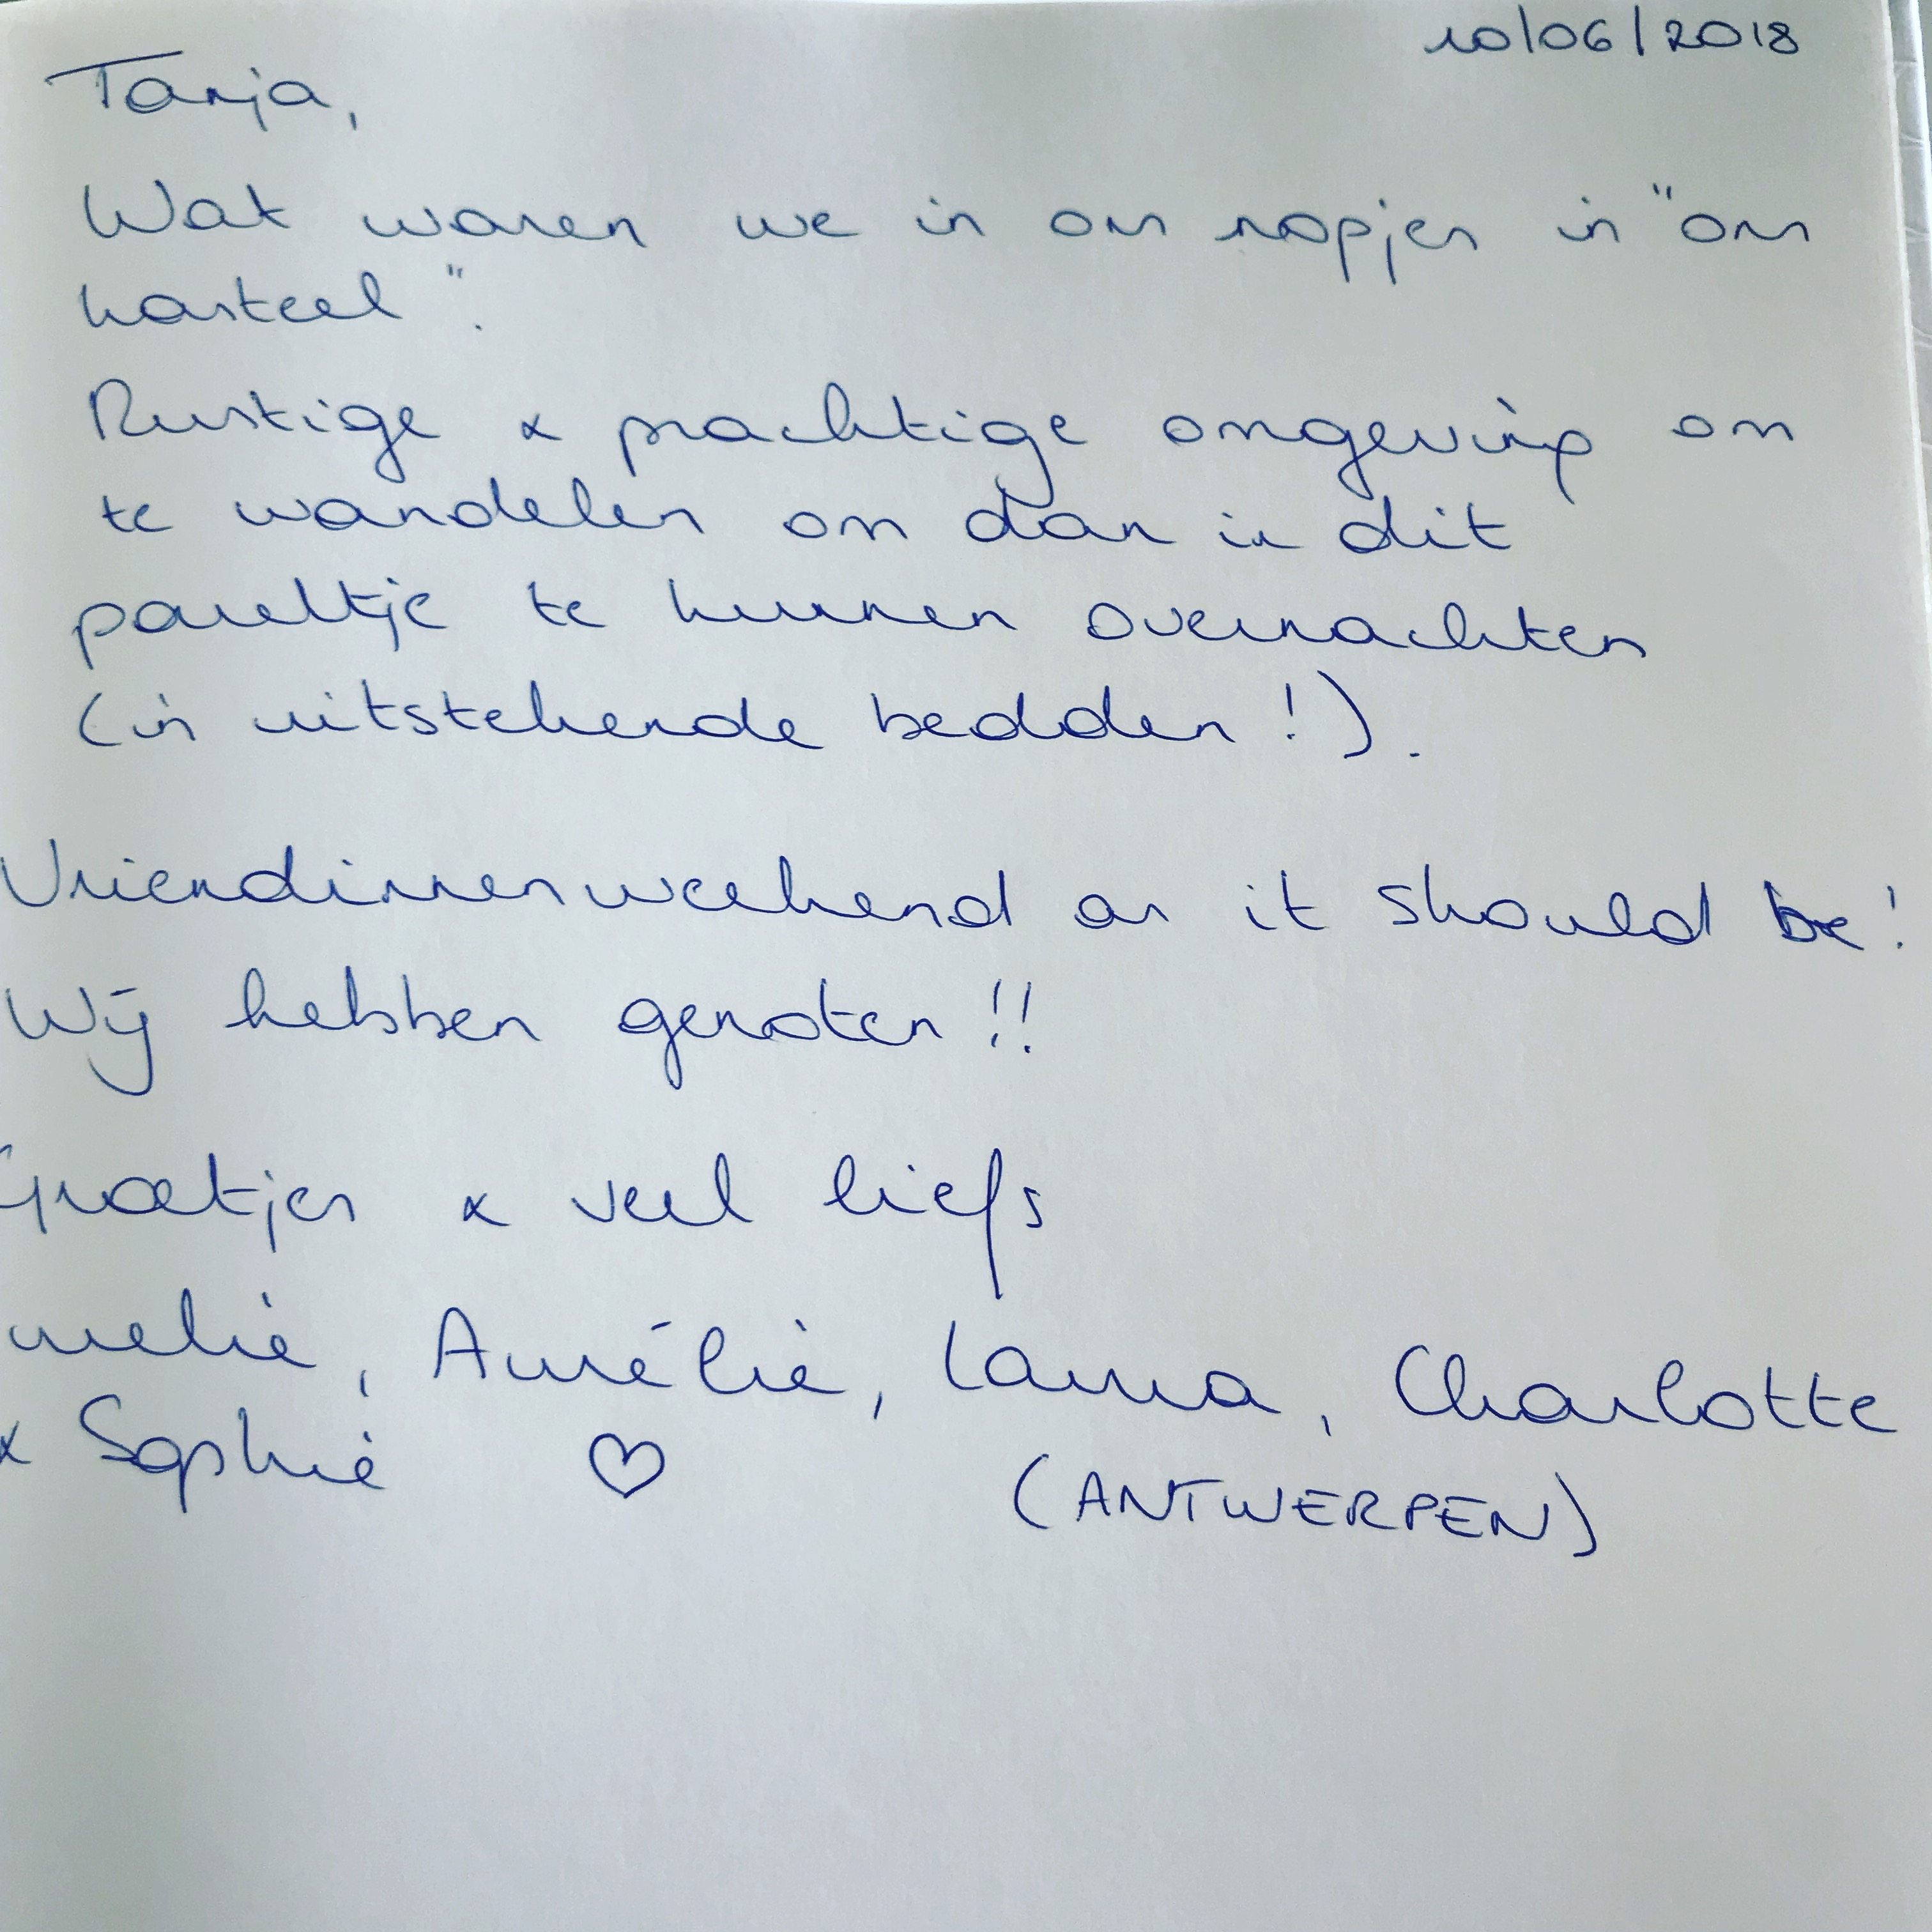 10/06/2018
Tanja,
Wat waren we in ons nopjes in "ons
kasteel".
Rustige & prachtige omgeving om
te wandelen om dan in dit
pareltje te kunnen overnachten
(in uitstekende bedden!).
Vriendinnenweekend as it should be!
Wij hebben genoten!!
Groetjes & veel liefs
Aurélie, Laura, Charlotte
& Sophie ♡ (ANTWERPEN)